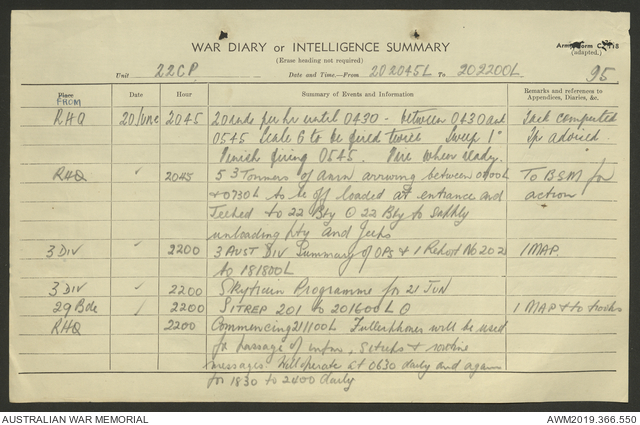 WAR DIARY or INTELLIGENCE SUMMARY
(Erase heading not required)
Army Form C. 118
(adapted.)
Unit 22CP Date and Time.—From 202045L To 202200L 95
Place Date Hour Summary of Events and Information Remarks and references to Appendices, Diaries, &c.
FROM
RHQ 20 June 2045 20 rds per hr until 0430 - between 0430 and Task computed
0545 Scale 6 to be fired twice Sweep 1° advised
Finish firing 0545. Fire when ready. "
RHQ " 2045 5 3 Tonners of amn arriving between 0600L To BSM for
& 0730L to be off loaded at entrance and action
Jeeped to 22 Bty 22 Bty to supply
unloading pty and Jeeps
3 DIV " 2200 3 AUST DIV Summary of OPS & I Report No 202 1 MAP
to 181800L
3 DIV " 2200 Programme for 21 JUN
29 Bde " 2200 SITREP 201 to 201600L 1 MAP & to tracks
RHQ 2200 Commencing 211100L Fullerphones will be used
for passage of infm, Sitreps & routine
messages. Will operate at 0630 daily and again
for 1830 to 2400 daily
AUSTRALIAN WAR MEMORIAL AWM2019.366.550